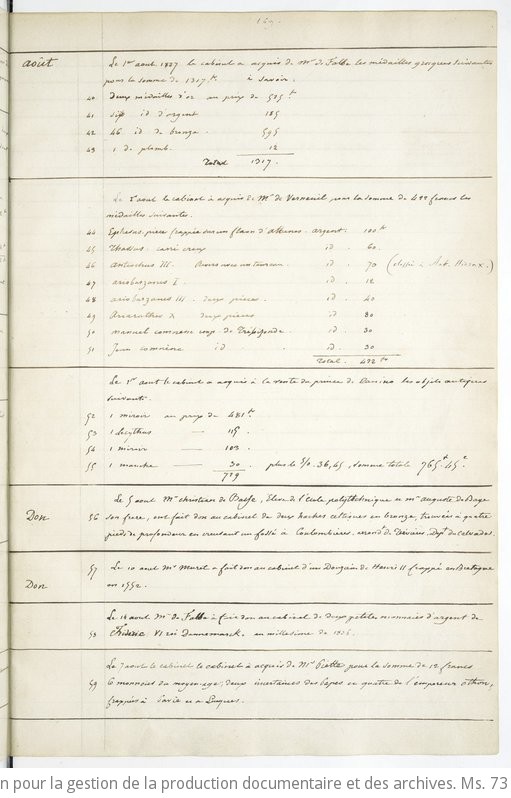 169.
août
Le 1er aout 1837 le cabinet a acquis de Mr de Falbe les médailles grecques suivantes
pour la somme de 1317.tt à savoir.
40 deux médailles d'or au prix de 525tt
41 sept id d'argent 185
42 46 id de bronze. 595
43 1 de plomb. 12
Total 1317.
Le 5 aout le cabinet à acquis de Mr de Verneuil pour la somme de 422 francs les
médailles suivantes.
44 Ephesus, pièce frappée sur un flaon d'Athenes. argent. 100tt
45 Thassus. carré creux id. 60.
46 antiochus III. id. 70 (classé à Ant. Hierax.)
47 ariobarzanes I. id. 12
48 ariobarzanes III. deux pieces. id. 40
49 Ariarathes X deux pieces id. 80
50 manuel comnene emp. de Trébizonde. id. 30
51 Jean comnène id id. 30
Total. 422tt
Le 1er aout le cabinet a acquis à la vente du prince de Canino les objets antiques
suivants.
52 1 miroir au prix de 481tt
53 1 lecythus — 115.
54 1 miroir — 103.
55 1 manche — 30. plus le 5/0. 36,45, somme totale 765tt.45c.
729
Don
56 Le 5 aout Mr christian de Baye, Eleve de l'école polythechnique et mr auguste de Baye
son frere, ont fait don au cabinet de deux haches celtiques en bronze, trouvées à quatre
pieds de profondeur en creusant un fossé à Coulombières. arrondt de Bayeux, Dept du Calvados.
Don
57 Le 10 aout Mr Muret a fait don au cabinet d'un Douzain de Henri II frappé en Bretagne
en 1552.
Le 14 aout Mr de Falbe a fait don au cabinet de deux petites monnaies d'argent de
58 Frédéric VI roi Dannemarck. au millésime de 1836.
Le 7 aout le cabinet le cabinet à acquis de Mr Piotte pour la somme de 12 francs
59 6 monnaies du moyen-age; deux incertaines des Papes et quatre de l'empereur othon,
frappées à Pavie et a Luques.
n pour la gestion de la production documentaire et des archives. Ms. 73